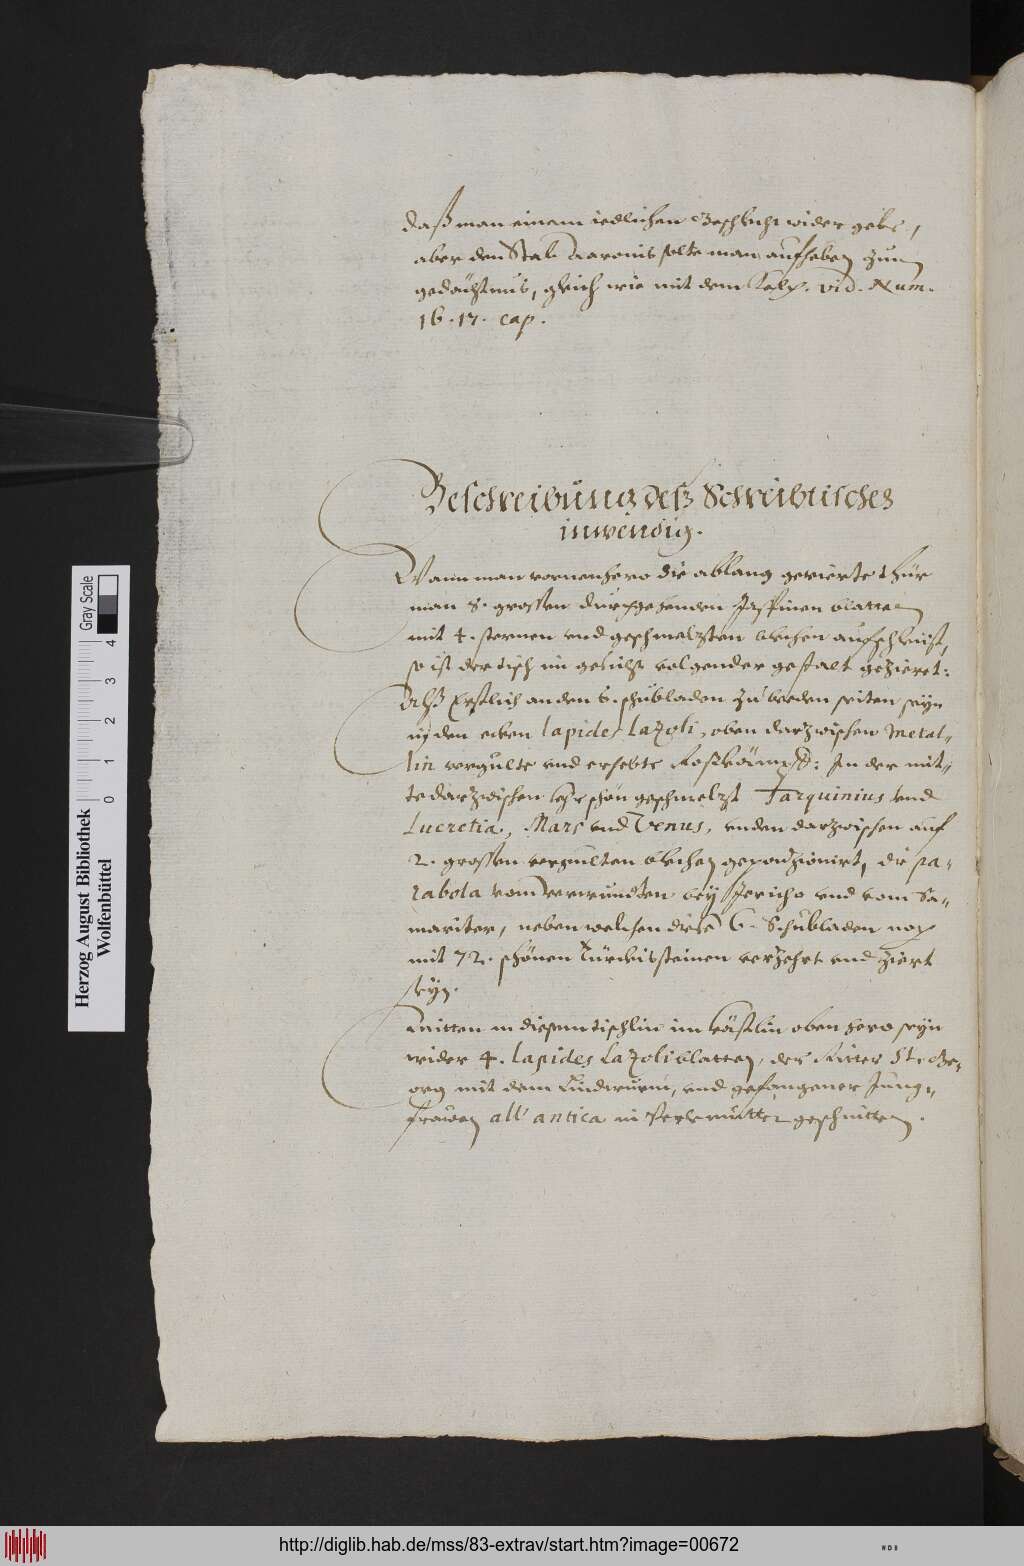 daß man einem iedlichen Geschlecht wider gebe,
aber den Stab Aaronis solte man aufheben zum
gedächtnus, gleich wie mit dem Kelch. vid. Num.
16. 17. cap.
Beschreibung deß Schreibtisches
inwendig.
Wann man vornenhero die ablang gevierte thür
man 8. grossen durchgehenden Jaspinen blatten
mit 4. sternen vnd geschmelzten blechen aufschleust,
so ist der tisch im gesicht volgender gestalt gezieret:
Alß Erstlich an den 6. schubladen zu beeden seiten seyn
in den ecken lapides Lazoli, oben darzwischen Metal-
lin vergulte vnd erhebte Roßköpff: In der mit-
te darzwischen sehr schön geschmelzt Tarquinius vnd
Lucretia, Mars vnd Venus, vnden darzwischen auf
2. grossen vergulten blechen gepontzionirt, die pa-
rabola vom verwundten bey Jericho vnd vom Sa-
mariter, neben welchen diese 6. Schubladen noch
mit 72. schönen Türckissteinen versezt vnd ziert
seyn.
Mitten in diesem tischlin im kästlin oben hero seyn
wider 4. lapides Lazoli blatten, der Ritter St. Ge-
org mit dem Lindwurm, vnd gefangener Jung-
frawen all' antica in Perlemutter geschnitten.
Herzog August Bibliothek
Wolfenbüttel
0 1 2 3 4
Gray Scale
http://diglib.hab.de/mss/83-extrav/start.htm?image=00672